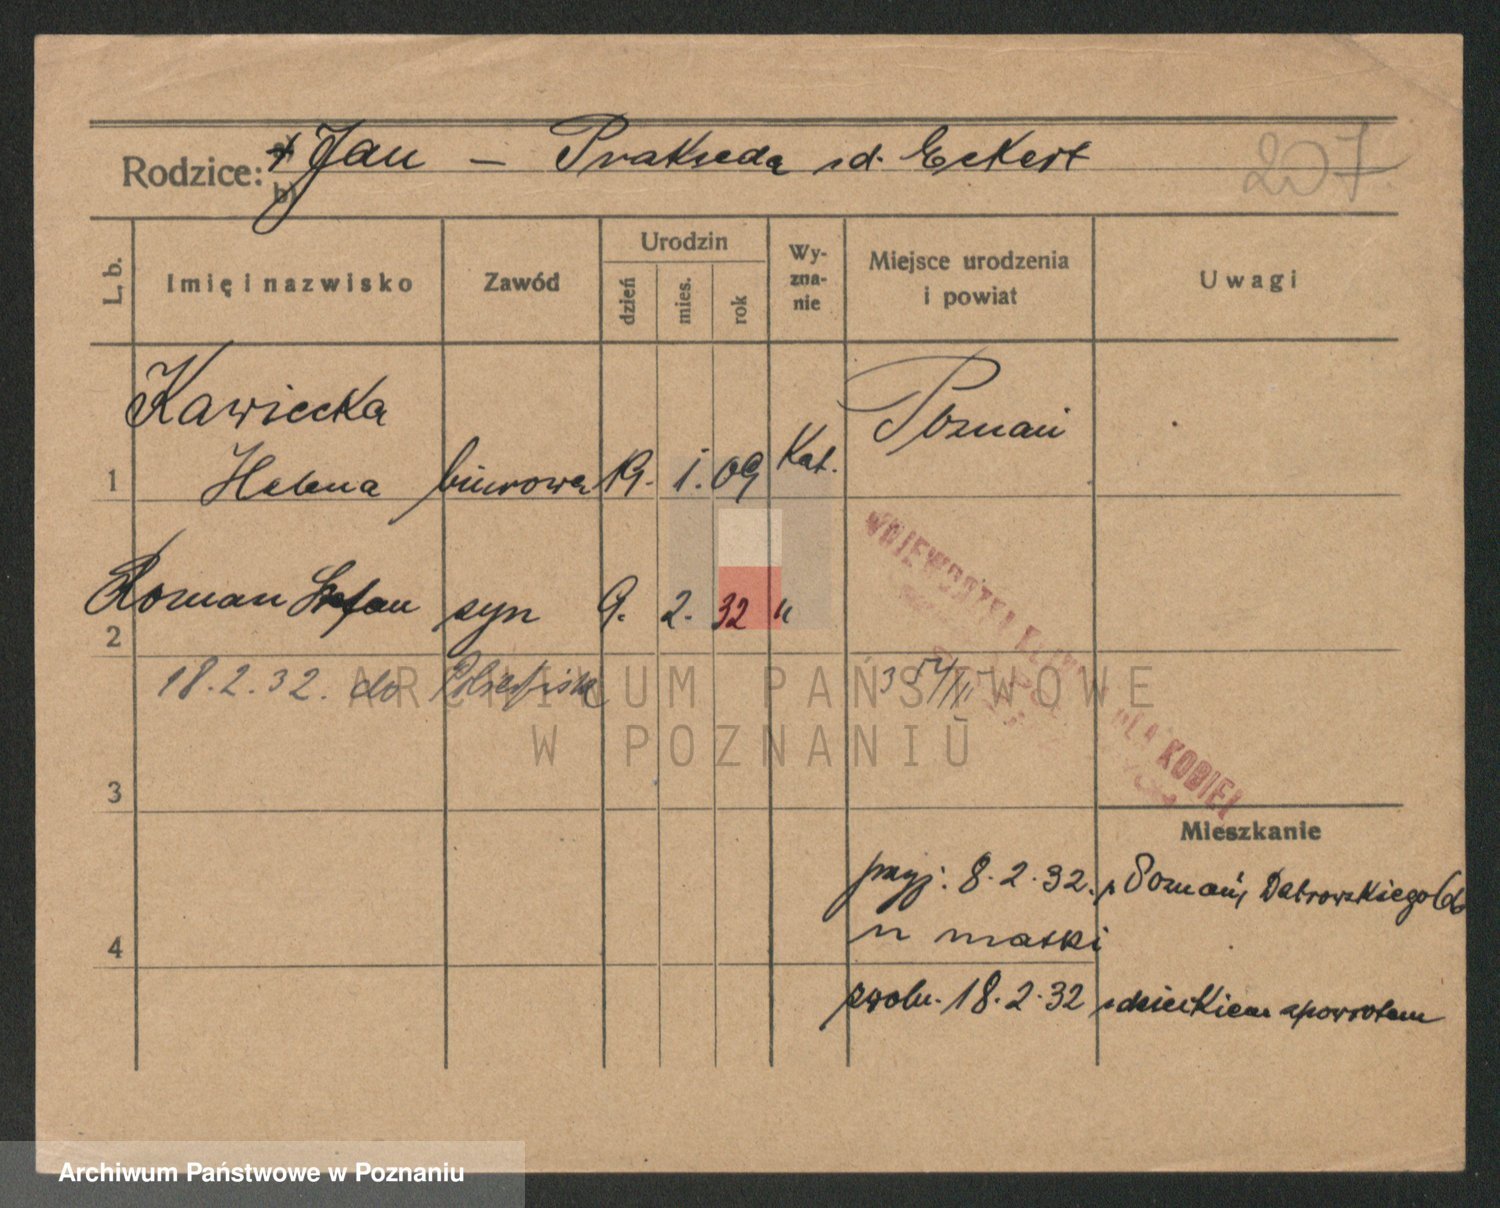 Rodzice:
Jan — Prakseda zd. Eckert
b)
207
L. b.
Imię i nazwisko
Zawód
Urodzin
dzień
mies.
rok
Wy-
zna-
nie
Miejsce urodzenia
i powiat
Uwagi
Kawiecka
Poznań
1 Helena biurowa 19. 1. 09 Kat.
Roman Stefan syn 9. 2. 32 "
2
18.2.32. do
3
WOJEWÓDZKA KLINIKA DLA KOBIET
Mieszkanie
przyj. 8.2.32. z Poznań, Dąbrowskiego
4
zwoln. 18.2.32 z dzieckiem zpowrotem
ARCHIWUM PAŃSTWOWE
W POZNANIU
Archiwum Państwowe w Poznaniu